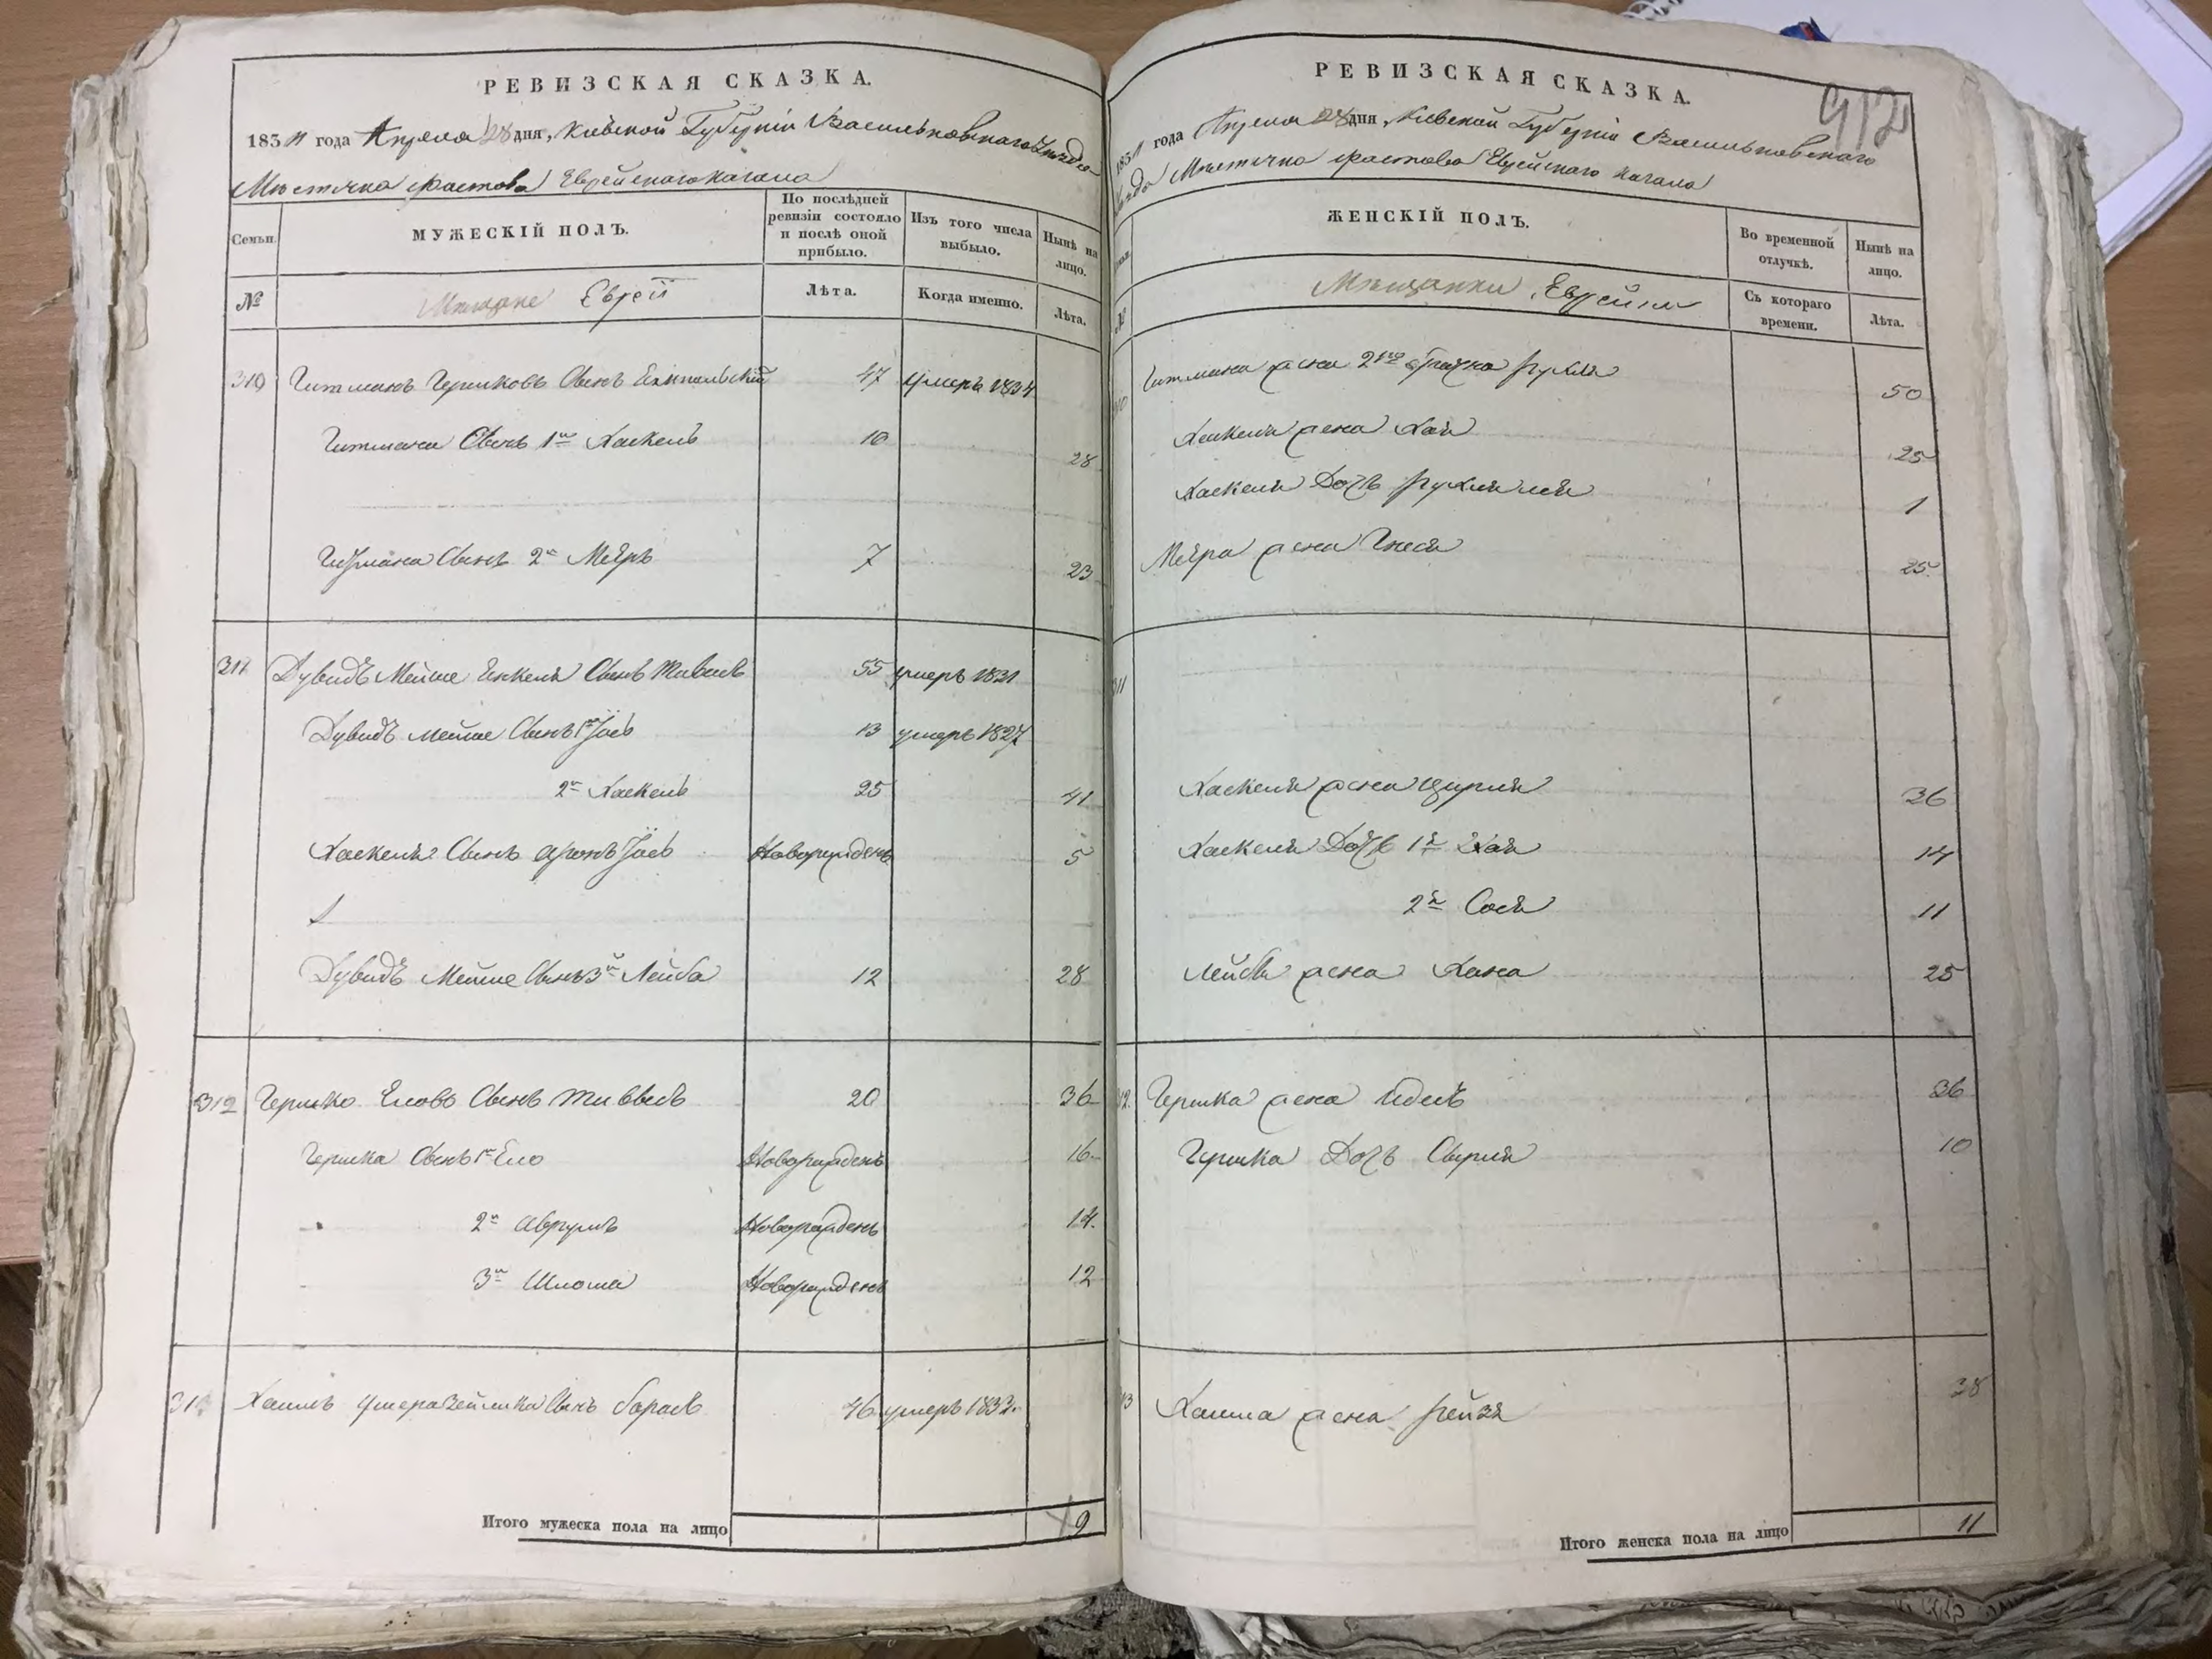 РЕВИЗСКАЯ СКАЗКА.
183 года Апреля 28 дня, Кіевской Губерніи Васильковскаго уезда
Местечка Фастова Еврейскаго Кагала
Семьи
МУЖЕСКІЙ ПОЛЪ.
По послѣдней ревизіи состояло и послѣ оной прибыло.
Изъ того числа выбыло.
Нынѣ на лицо.
№
Мещане Еврей
Лѣта.
Когда именно.
Лѣта.
310 Гитманъ Гершковъ Сынъ 47 умеръ 1834
Гитмана Сынъ 1й Хаскель 10 28
Гитмана Сынъ 2й Меяръ 7 23
311 Дувидъ Мейше Енкеля Сынъ 55 умеръ 1831
Дувидъ Мейше Сынъ 1й Іосъ 13 умеръ 1827
2й Хаскель 25 41
Хаскеля Сынъ Аронъ Іосъ Новорожденъ 5
Дувидъ Мейше Сынъ 3й Лейба 12 28
312 Гершко Еловъ Сынъ 20 36
Гершка Сынъ 1й Ело Новорожденъ 16
2й Аврумъ Новорожденъ 14
3й Шлома Новорожденъ 12
313 Хаимъ Сынъ 46 умеръ 1832
Итого мужеска пола на лицо 9
РЕВИЗСКАЯ СКАЗКА.
912
183 года Апреля 28 дня, Кіевской Губерніи Васильковскаго
уезда Местечка Фастова Еврейскаго Кагала
ЖЕНСКІЙ ПОЛЪ.
Во временной отлучкѣ.
Нынѣ на лицо.
№
Мещанки Еврейки
Съ котораго времени.
Лѣта.
Гитмана жена 2го брачка Рухля 50
Хаскеля жена Хая 25
Хаскеля Дочь Рухля Лея 1
Меяра жена Гнеся 25
Хаскеля жена Цирля 36
Хаскеля Дочь 1я Хая 14
2я Сося 11
Лейбы жена Хана 25
Гершка жена Идель 36
Гершка Дочь Сырля 10
Хаима жена Рейзя 38
Итого женска пола на лицо 11